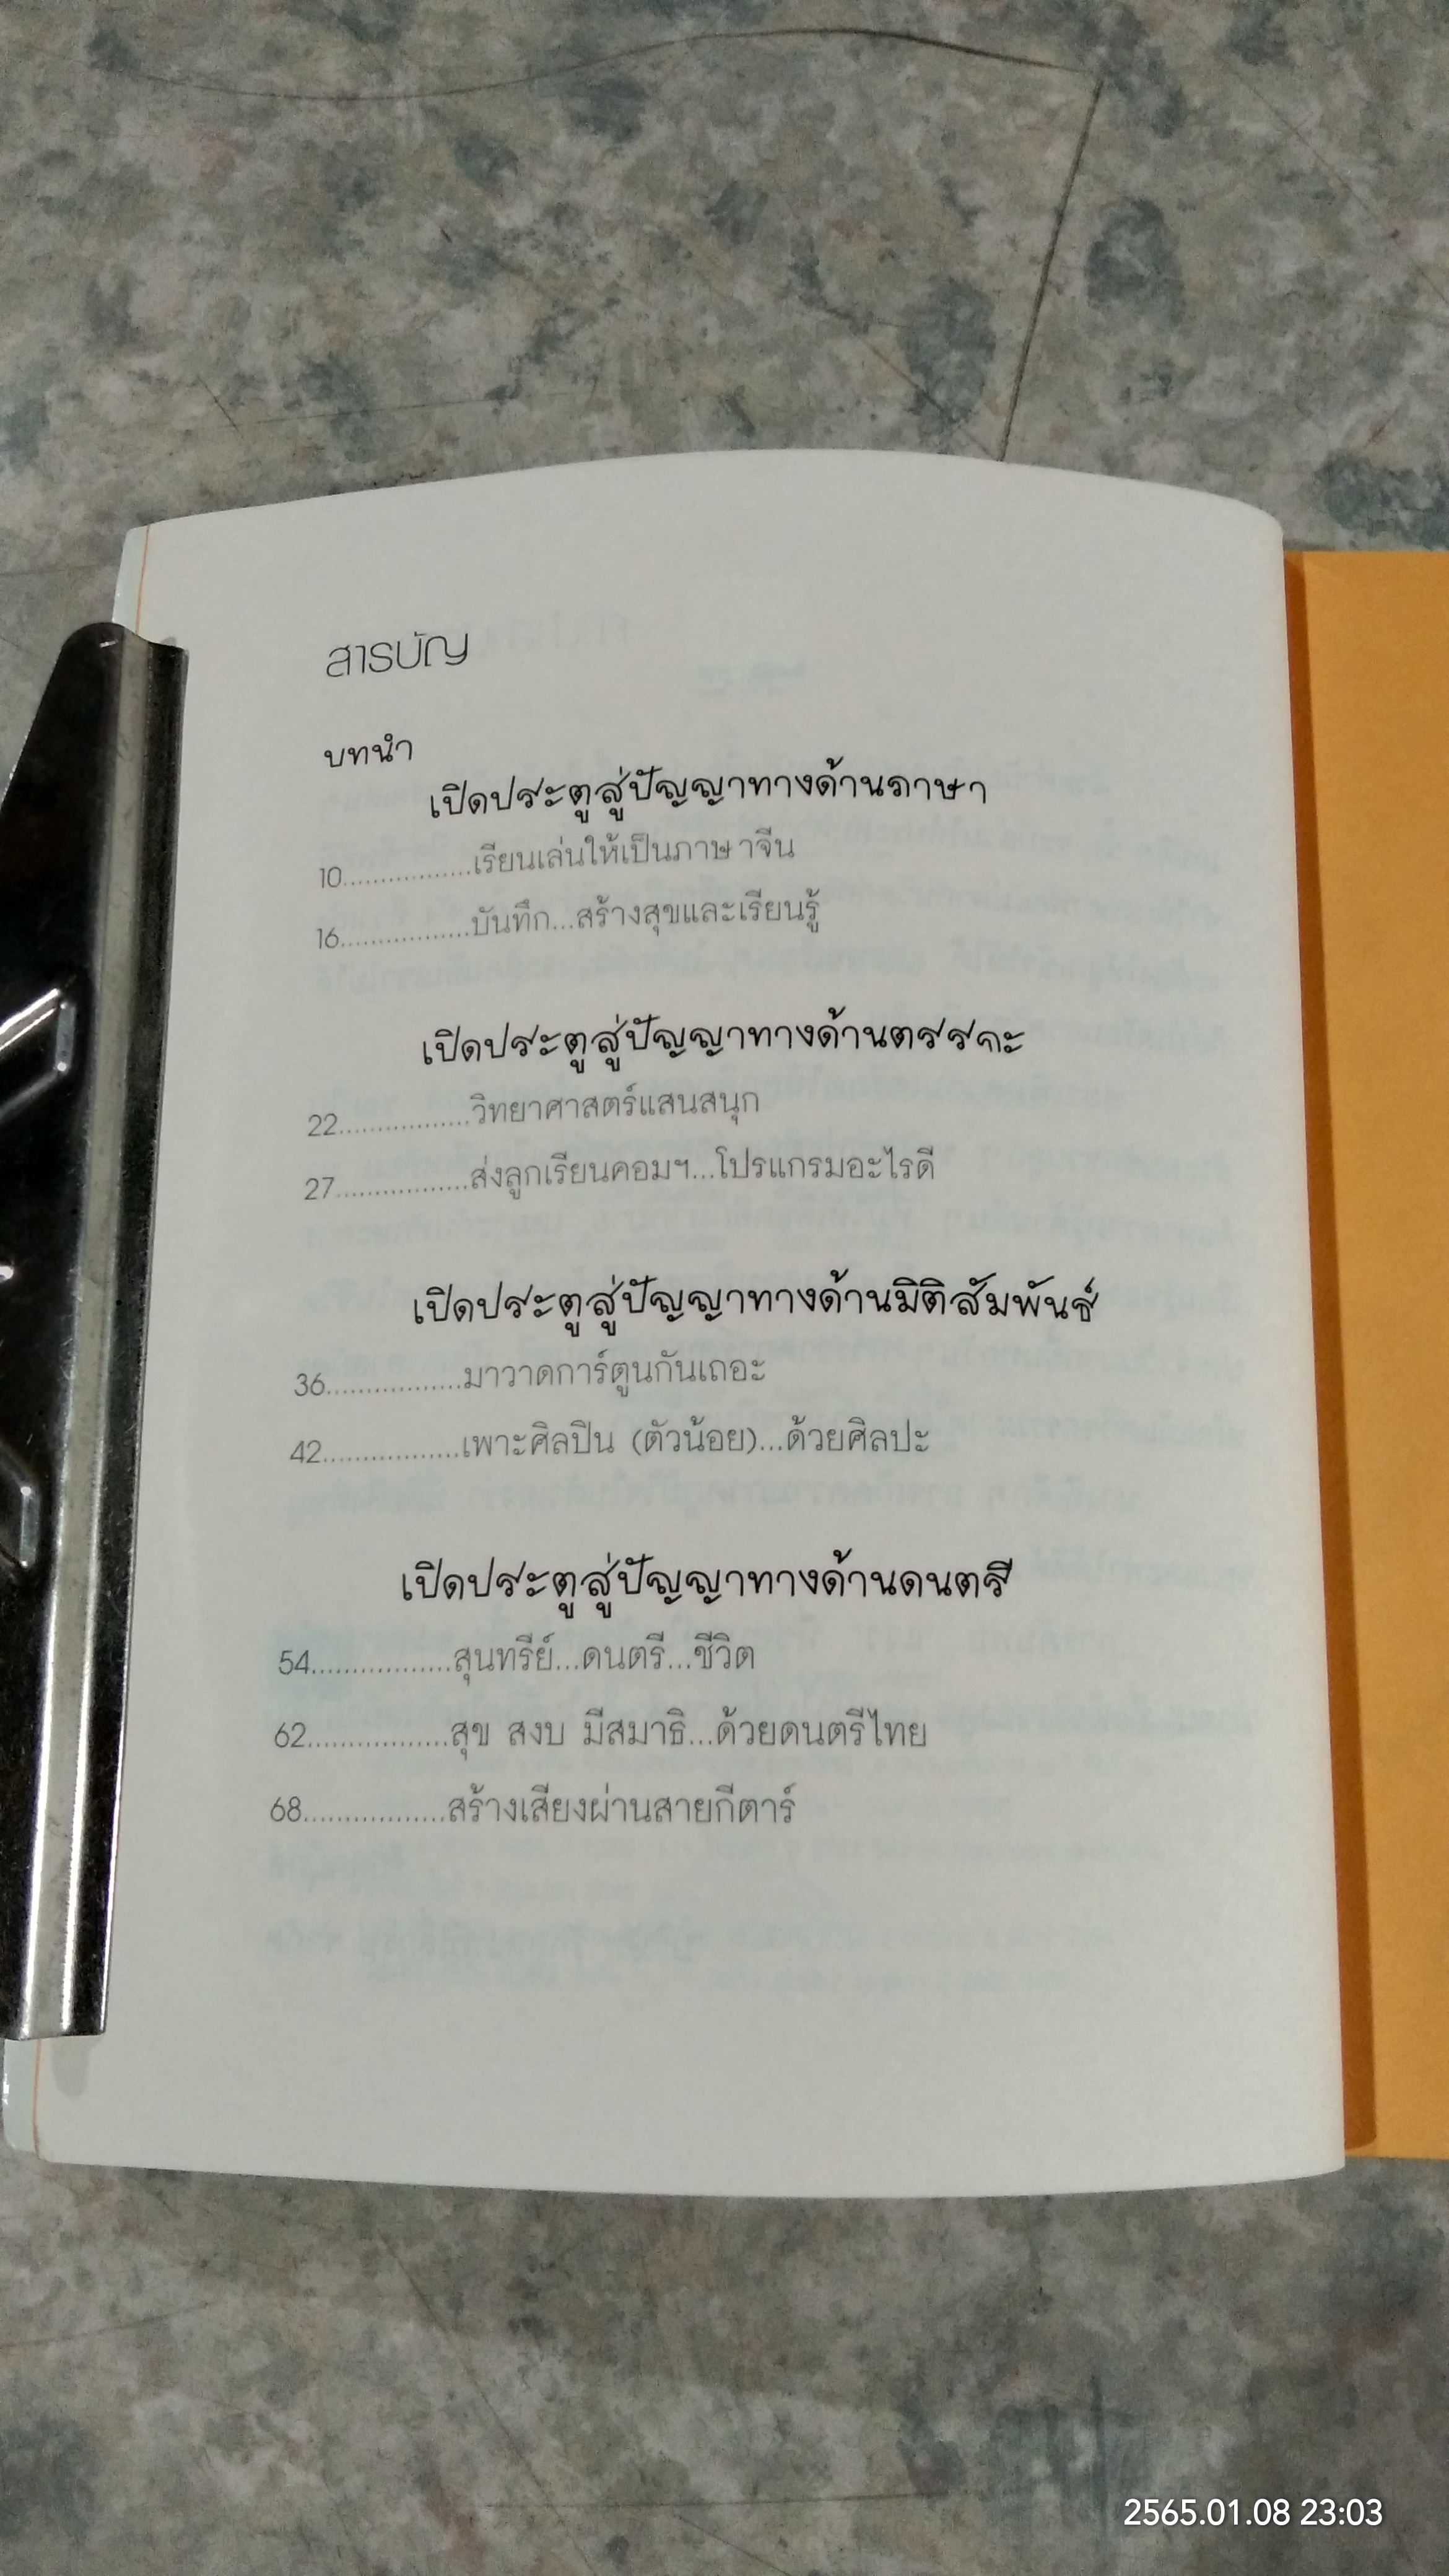 สารบัญ
บทนำ
เปิดประตูสู่ปัญญาทางด้านภาษา
10.................เรียนเล่นให้เป็นภาษาจีน
16.................บันทึก...สร้างสุขและเรียนรู้
เปิดประตูสู่ปัญญาทางด้านตรรกะ
22.................วิทยาศาสตร์แสนสนุก
27.................ส่งลูกเรียนคอมฯ...โปรแกรมอะไรดี
เปิดประตูสู่ปัญญาทางด้านมิติสัมพันธ์
36.................มาวาดการ์ตูนกันเถอะ
42.................เพาะศิลปิน (ตัวน้อย)...ด้วยศิลปะ
เปิดประตูสู่ปัญญาทางด้านดนตรี
54.................สุนทรีย์...ดนตรี...ชีวิต
62.................สุข สงบ มีสมาธิ...ด้วยดนตรีไทย
68.................สร้างเสียงผ่านสายกีตาร์
2565.01.08 23:03